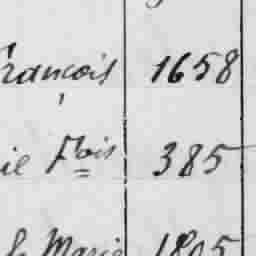 François 1658
ie Fois 385
h Marie 1805